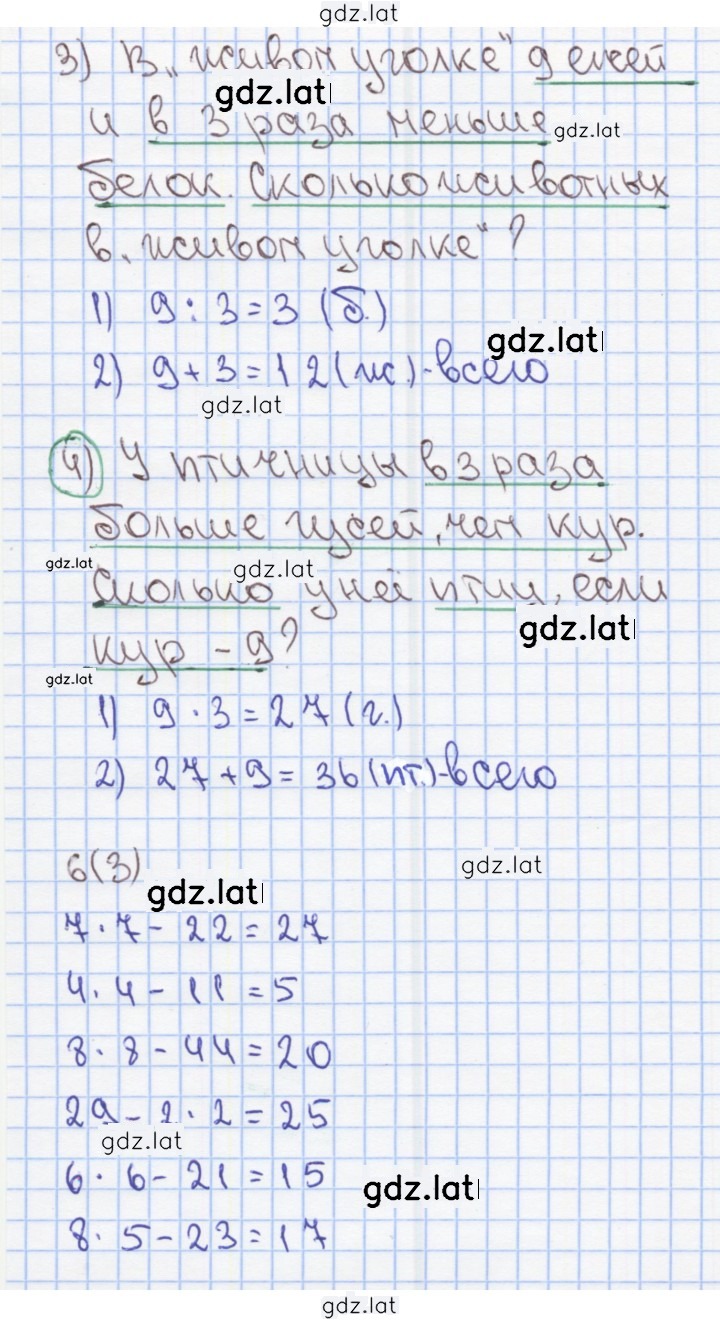 gdz.lat
3) В „живом уголке" 9 ежей
gdz.lat
и в 3 раза меньше
gdz.lat
белок. Сколько животных
в „живом уголке"?
1) 9 : 3 = 3 (б.)
gdz.lat
2) 9 + 3 = 12 (ж.) - всего
gdz.lat
4) У птичницы в 3 раза
больше гусей, чем кур.
gdz.lat
gdz.lat
Сколько у неё птиц, если
gdz.lat
кур - 9?
gdz.lat
1) 9 · 3 = 27 (г.)
2) 27 + 9 = 36 (пт.) - всего
6(3)
gdz.lat
gdz.lat
7 · 7 - 22 = 27
4 · 4 - 11 = 5
8 · 8 - 44 = 20
29 - 2 · 2 = 25
gdz.lat
6 · 6 - 21 = 15
gdz.lat
8 · 5 - 23 = 17
gdz.lat